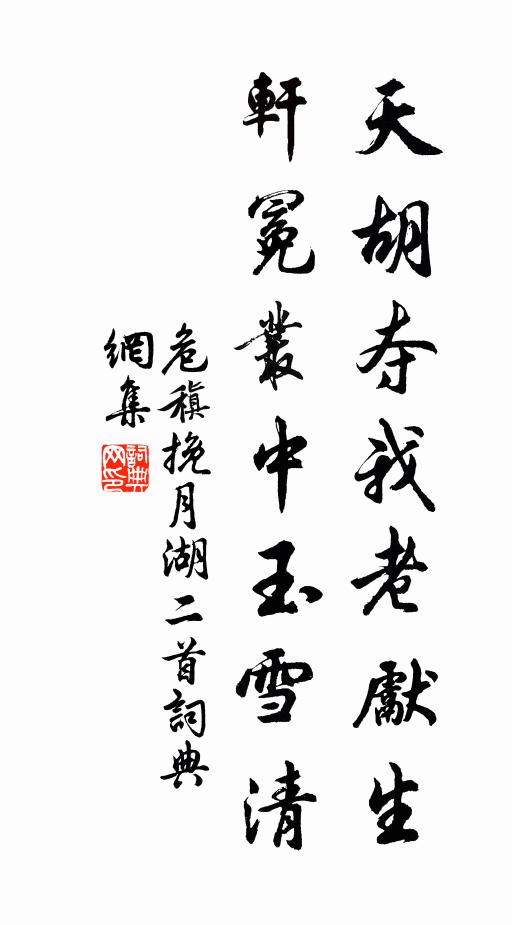 天胡夺我老獻生
軒冕叢中玉雪清
危稹挽月湖二首詞典
網集
詞典网印